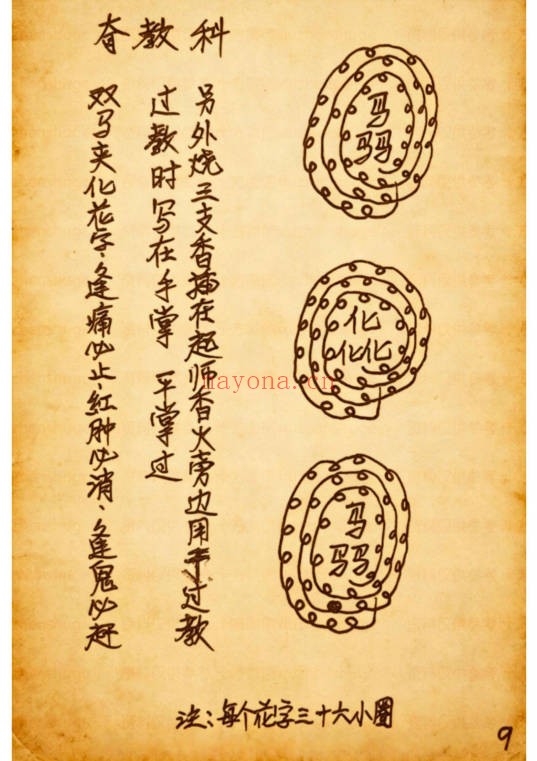 教科
另外烧三支香插在起师香火旁边用过教
过教时写在手掌 平掌过
双马夹化花字、逢痛必止、紅肿必消、逢鬼必赶
马
马马
化
化化
马
马马
注：每个花字三十六小圈
9
nayona.cn